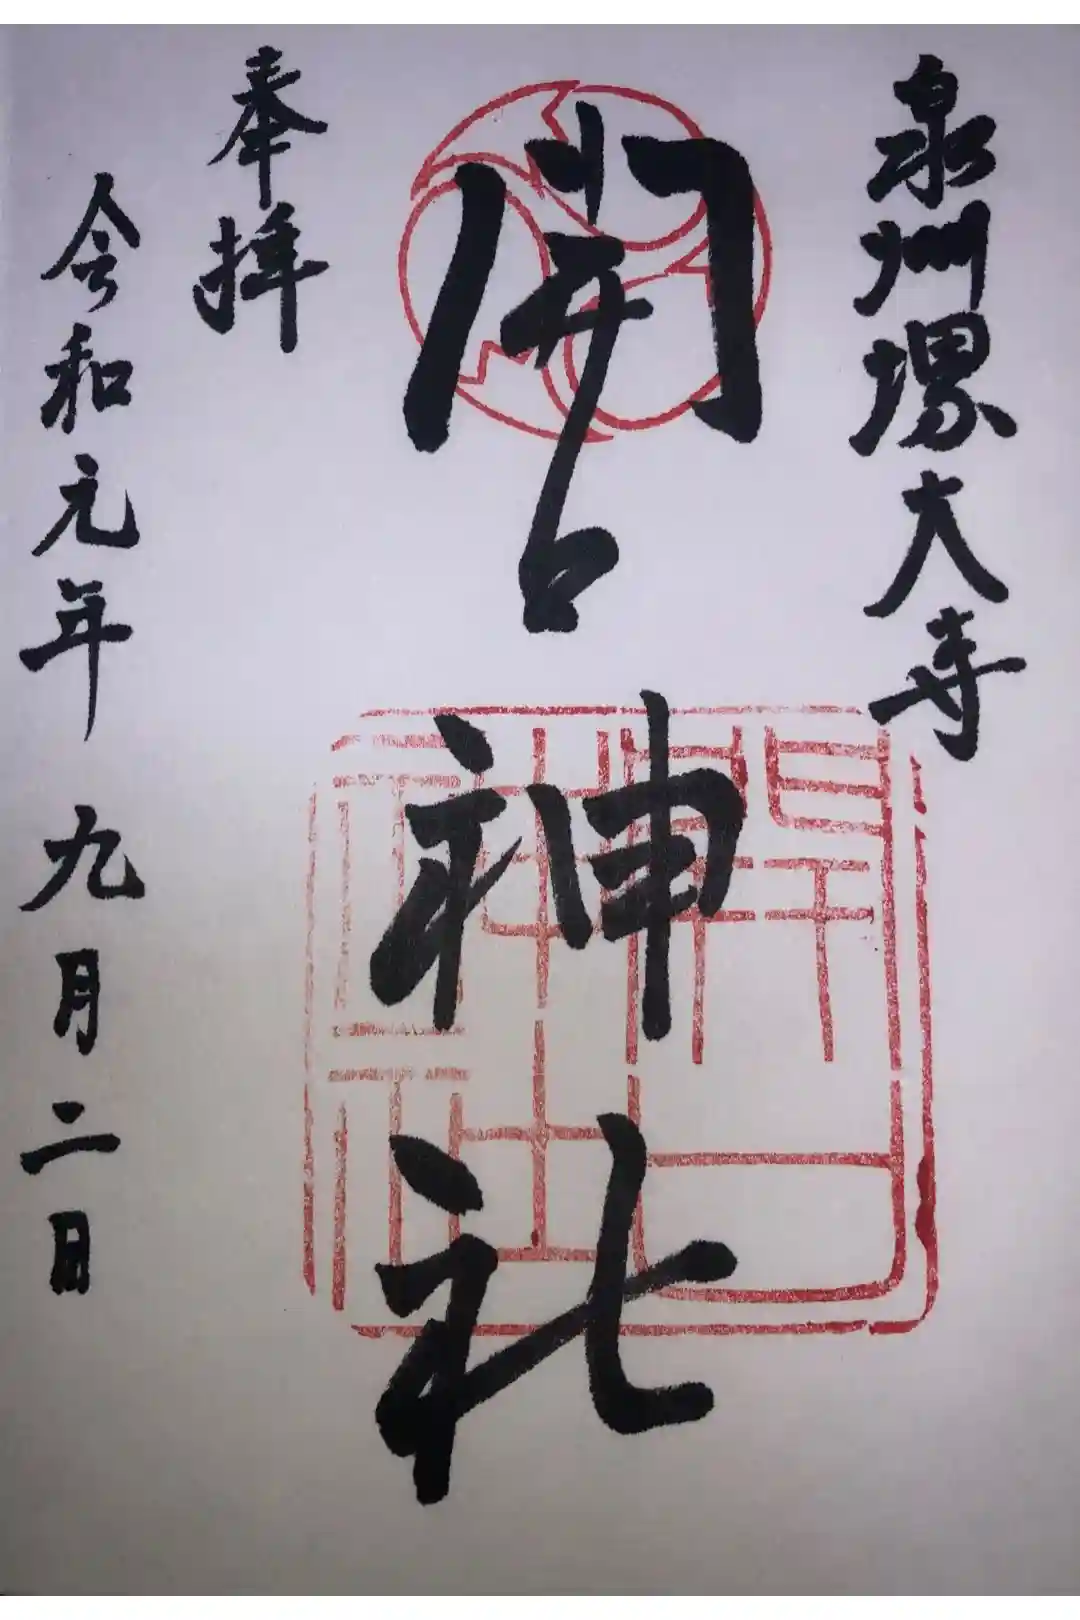 泉州堺大寺
開口神社
奉拝
令和元年九月二日
開口神社印